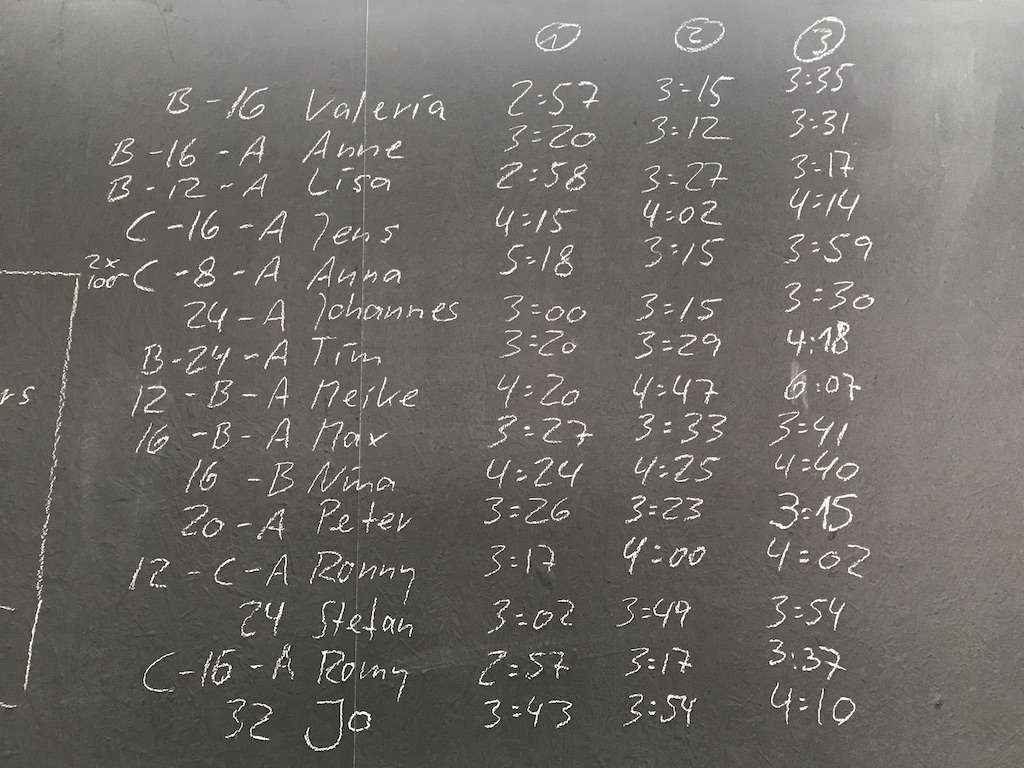 ① ② ③
B-16 Valeria 2:57 3:15 3:35
B-16-A Anne 3:20 3:12 3:31
B-12-A Lisa 2:58 3:27 3:17
C-16-A Jens 4:15 4:02 4:14
2x
100 C-8-A Anna 5:18 3:15 3:59
24-A Johannes 3:00 3:15 3:30
B-24-A Tim 3:20 3:29 4:18
rs
12-B-A Meike 4:20 4:47 6:07
16-B-A Max 3:27 3:33 3:41
16-B Nina 4:24 4:25 4:40
20-A Peter 3:26 3:23 3:15
12-C-A Ronny 3:17 4:00 4:02
24 Stefan 3:02 3:49 3:54
C-16-A Romy 2:57 3:17 3:37
32 Jo 3:43 3:54 4:10